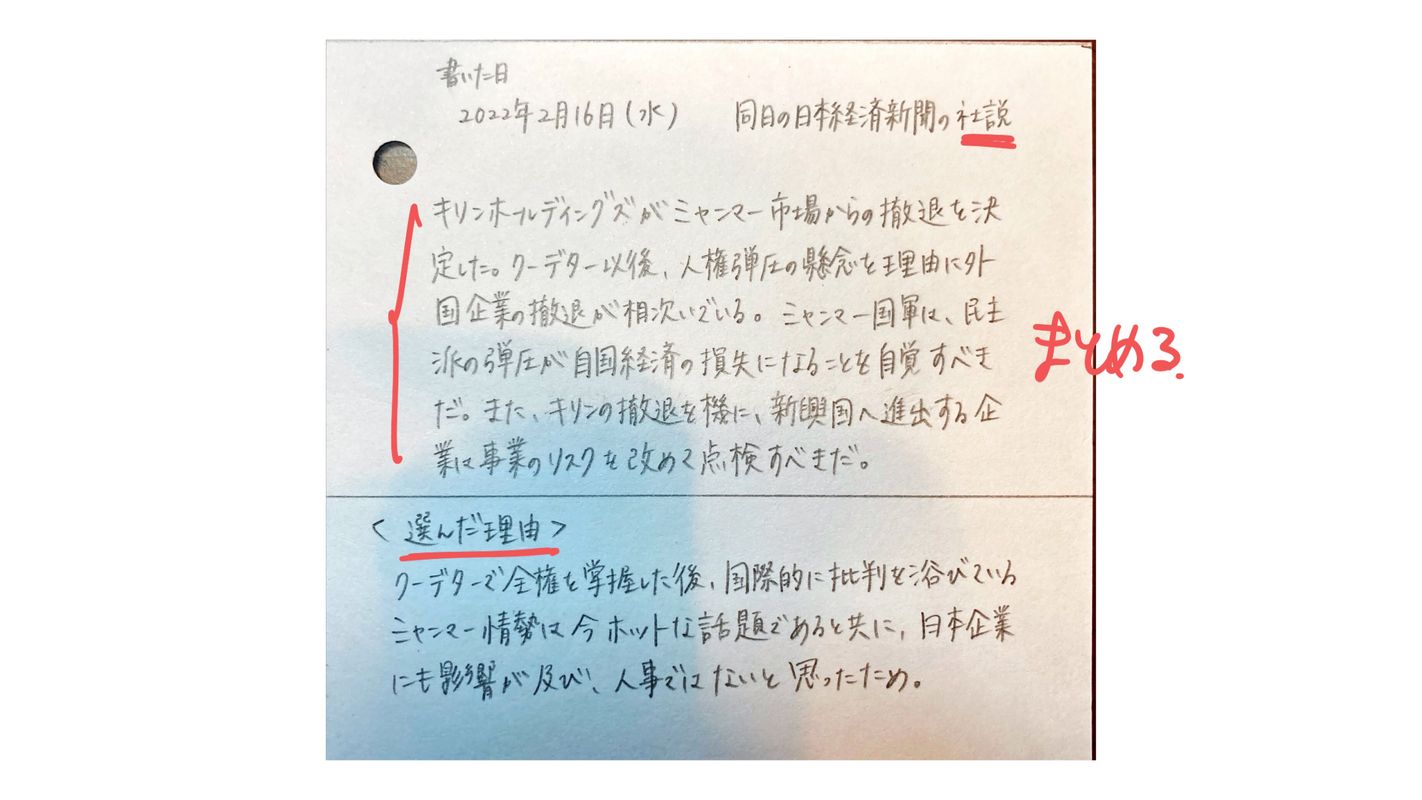 書いた日
2022年2月16日(水) 同日の日本経済新聞の社説
キリンホールディングズがミャンマー市場からの撤退を決
定した。クーデター以後、人権弾圧の懸念を理由に外
国企業の撤退が相次いでいる。ミャンマー国軍は、民主
派の弾圧が自国経済の損失になることを自覚すべき
だ。また、キリンの撤退を機に、新興国へ進出する企
業は事業のリスクを改めて点検すべきだ。
まとめる.
<選んだ理由>
クーデターで全権を掌握した後、国際的に批判を浴びている
ミャンマー情勢は今ホットな話題であると共に、日本企業
にも影響が及び、人事ではないと思ったため。